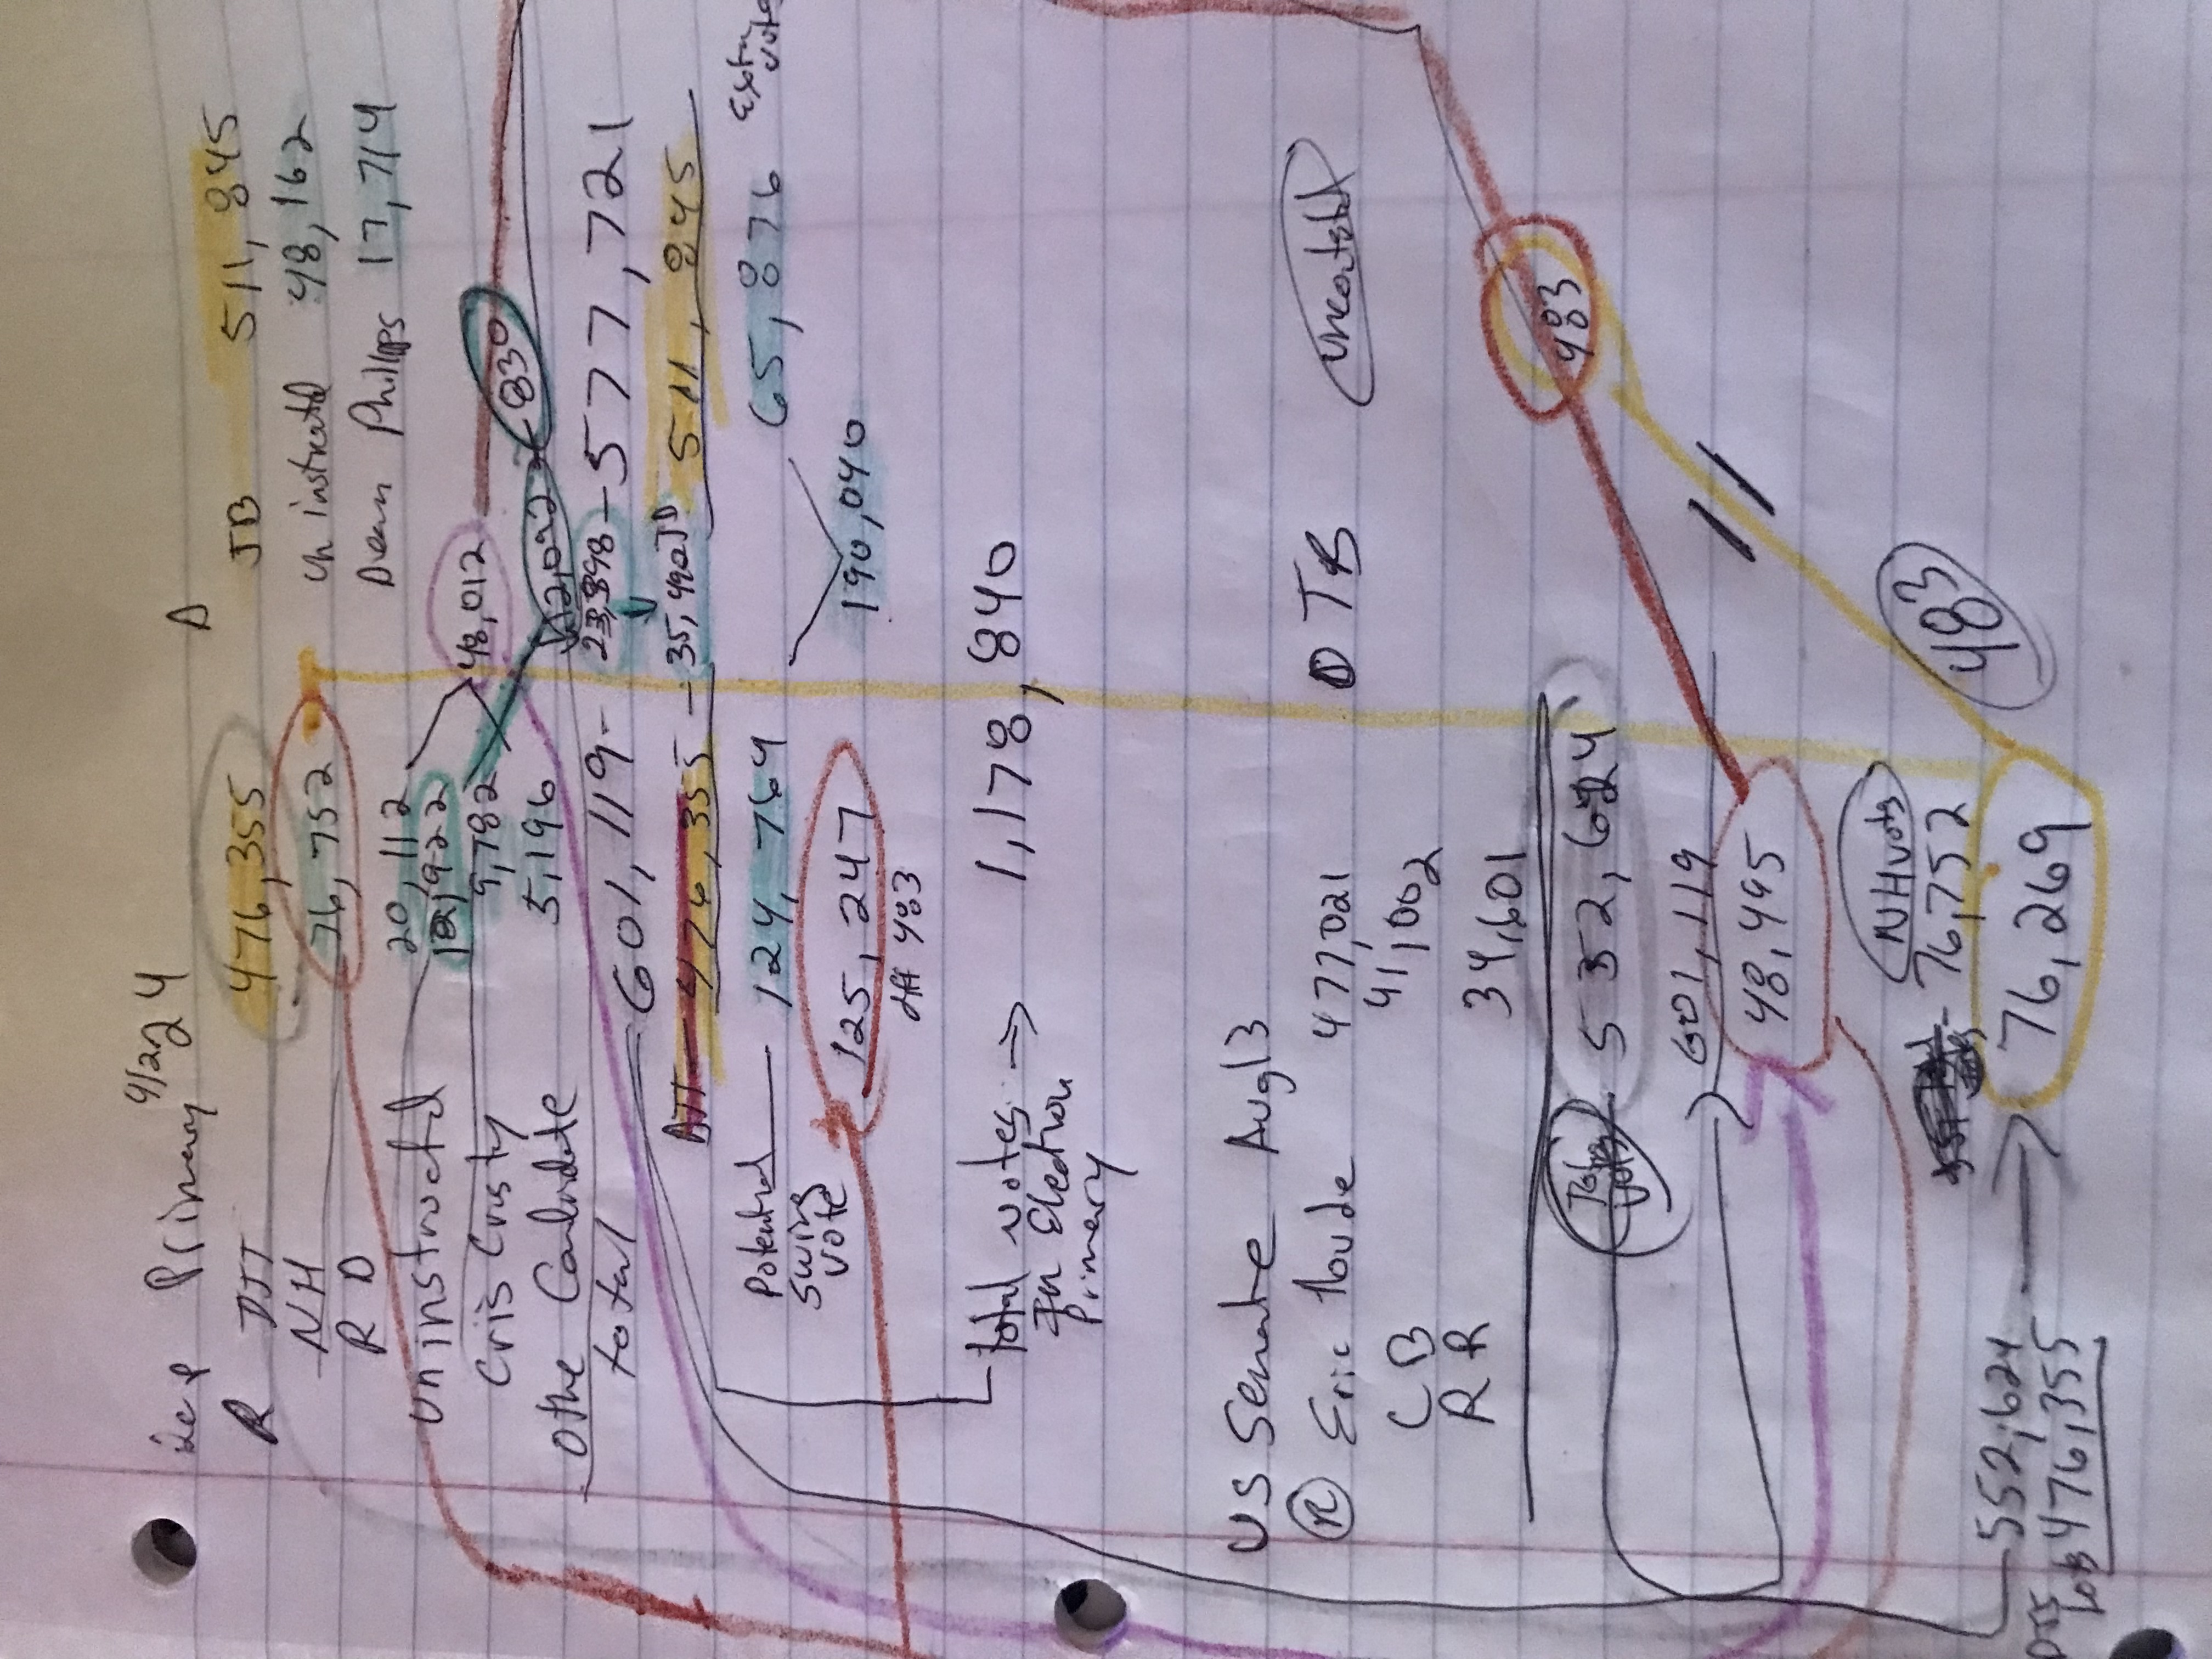 Primary 4/2/24
R D
DJT 476,355 JB 511,845
NH 76,752 uninstructd 48,162
R D 20,112 Dean Phillips 17,714
Uninstructed 12,922 48,012
Cris Cristy 9,782 12,092 830
Othe Candidate 5,196
total 601,119 - 23,398 - 577,721
DJT - 476,355 - 35,490 JB 511,845
Potential Swing vote 124,764 65,876 Extra votes
190,040
125,247
diff 483
total votes → 1,178,840
In Election
Primary
US Senate Aug 13
R Eric Hovde 477,021 D TB Uncontested
CB 41,002
RR 34,601
Total votes 552,624
601,119
48,495
483
NH vots
76,752
483
76,269
552,624
476,355